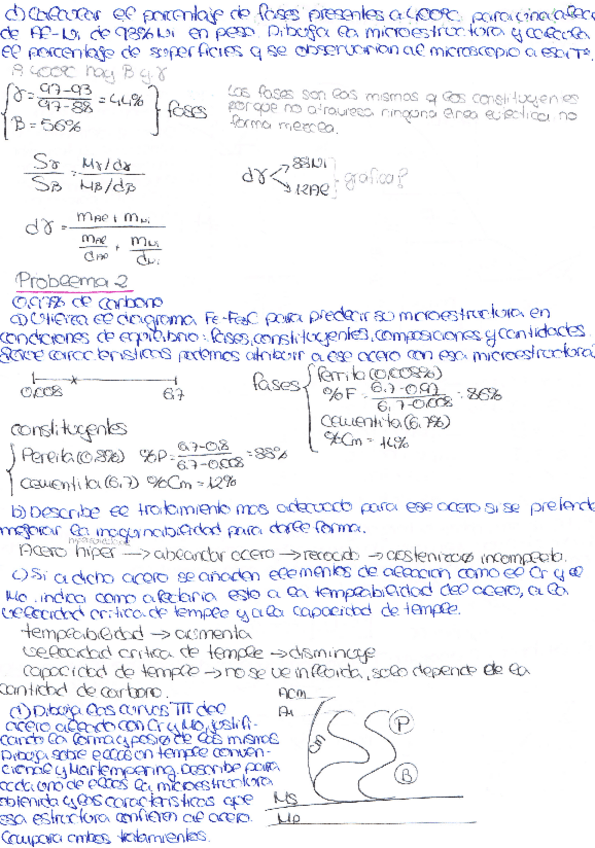 d) Calcular el porcentaje de fases presentes a 400ºC. para una aleac.
de Al-Ni de 93% Ni en peso. Dibuja la microestructura y calcula
el porcentaje de superficies q se observarían al microscopio a esa Tª.
A 400ºC hay B y γ
γ = 97-93 / 97-88 = 44%
B = 56%
} fases
Las fases son las mismas q los constituyentes
porque no atraviesa ninguna línea eutéctica no
forma mezcla.
Sγ / SB = Mγ/dγ / MB/dB
dγ < 88Ni
12Al } grafica?
dγ = mAl + mNi / mAl/dAl + mNi/dNi
Problema 2
0,97% de carbono
a) Utiliza el diagrama Fe-Fe3C para predecir su microestructura en
condiciones de equilibrio: fases, constituyentes, composiciones y cantidades
características podemos atribuir a ese acero con esa microestructura?
0,008 6,7
fases
Ferrita (0,008%)
%F = 6,7-0,97 / 6,7-0,008 = 86%
cementita (6,7%)
%Cm = 14%
constituyentes
Perlita (0,8%) %P = 6,7-0,8 / 6,7-0,008 = 88%
Cementita (6,7) %Cm = 12%
b) Describe el tratamiento mas adecuado para ese acero si se pretende
mejorar la maquinabilidad para darle forma.
Acero hiper → ablandar acero → recocido → austenizac incompleta.
c) Si a dicho acero se añaden elementos de aleación como el Cr y el
Mo. indica como afectaria esto a la templabilidad del acero, a la
velocidad critica de temple y a la capacidad de temple.
templabilidad → aumenta
velocidad critica de temple → disminuye
capacidad de temple → no se ve influida, solo depende de la
cantidad de carbono.
d) Dibuja las curvas TTT del
acero aleado con Cr y Mo, justifi-
cando la forma y posic de las mismas
Dibuja sobre ellas un temple conven-
cional y Martempering. Describe para
cada uno de ellos la microestructura
obtenida y las características que
esa estructura confieren al acero.
Compara ambos tratamientos.
Acm
A1
Cm
P
B
Ms